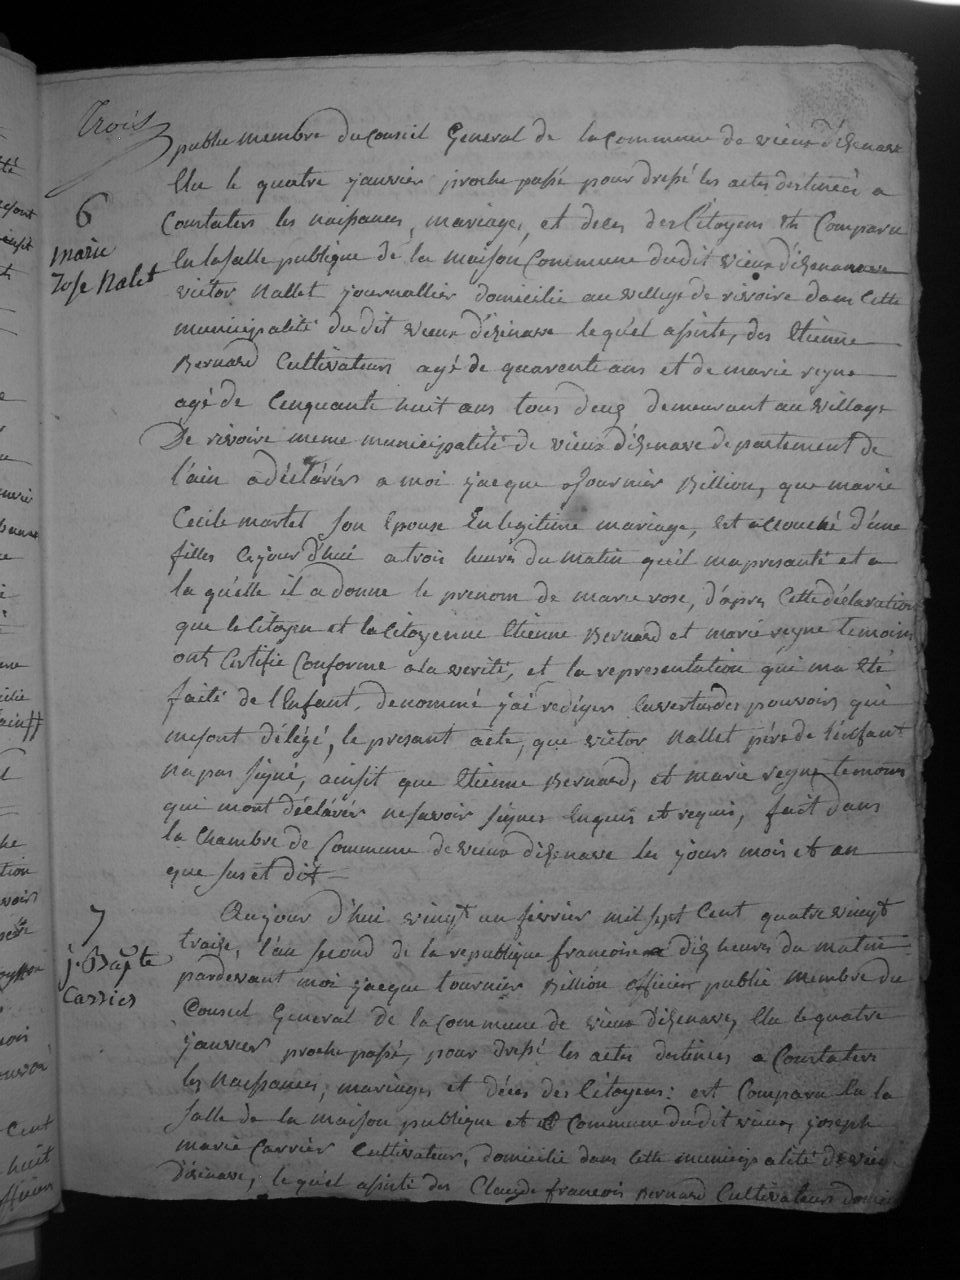 Trois
publie membre du Conseil General de la Commune de vieux d'izenave
Elu le quatre janvier proche passé pour dressé les actes destinées a
6
Constaters les naissances, mariages, et deces des Citoyens Est Comparu
marie
Rose Nalet
En la salle publique de la maison Commune du dit vieux d'izenave
victor Nallet journallier domicilié au village de rivoire dans Cette
municipalité du dit vieux d'izenave lequ'el assisté, des Etienne
Bernard Cultivateurs agé de quarente ans et de marie reyne
agé de Cenquante huit ans tous deux demeurant au village
De rivoire meme municipalité de vieux d'izenave departement de
l'ain a déclárér a moi jacque tournier Billion, que marie
Cecile martel son Epouse En legitime mariage, Est accouché d'une
filles cejour d'hui a trois heures du matin qu'il ma presanté et a
la qu'elle il a donne le prenom de marie rose, d'apres Cette déclaration
que le Citoyen et la Citoyenne Etienne Bernard et marie reyne temoins
ont Certifie Conforme a la verité, et la representation qui ma Eté
faite de l'Enfant, denommé j'ai rediger En vertu des pouvoirs qui
me sont délégé, le presant acte, que victor Nallet pére de l'enfant
na pas signé, ainsit que Etienne Bernard, et marie reyne temoins
qui mont déclárér ne savoir signer Enquis et requis, fait dans
la Chambre de Commune de vieux d'izenave les jours mois et an
que sus et dit
7
Aujour d'hui vingt un fevrier mil sept Cent quatre vingt
j. Bapte
Carrier
traise, l'an second de la republique francoise a dix heures du matin
pardevant moi jacque tournier Billion officier publie membre du
Conseil General de la Commune de vieux d'izenave, Elu le quatre
janvier proche passé, pour dressé les actes destinees a Constaters
les Naissances, mariages et déces des Citoyens: est Comparu En la
salle de la maison publique et Commune du dit vieux, joseph
marie Carrier Cultivateur, domicilié dans Cette municipalité de vieux
d'izenave, le qu'el assisté des Claude francois Bernard Cultivateurs